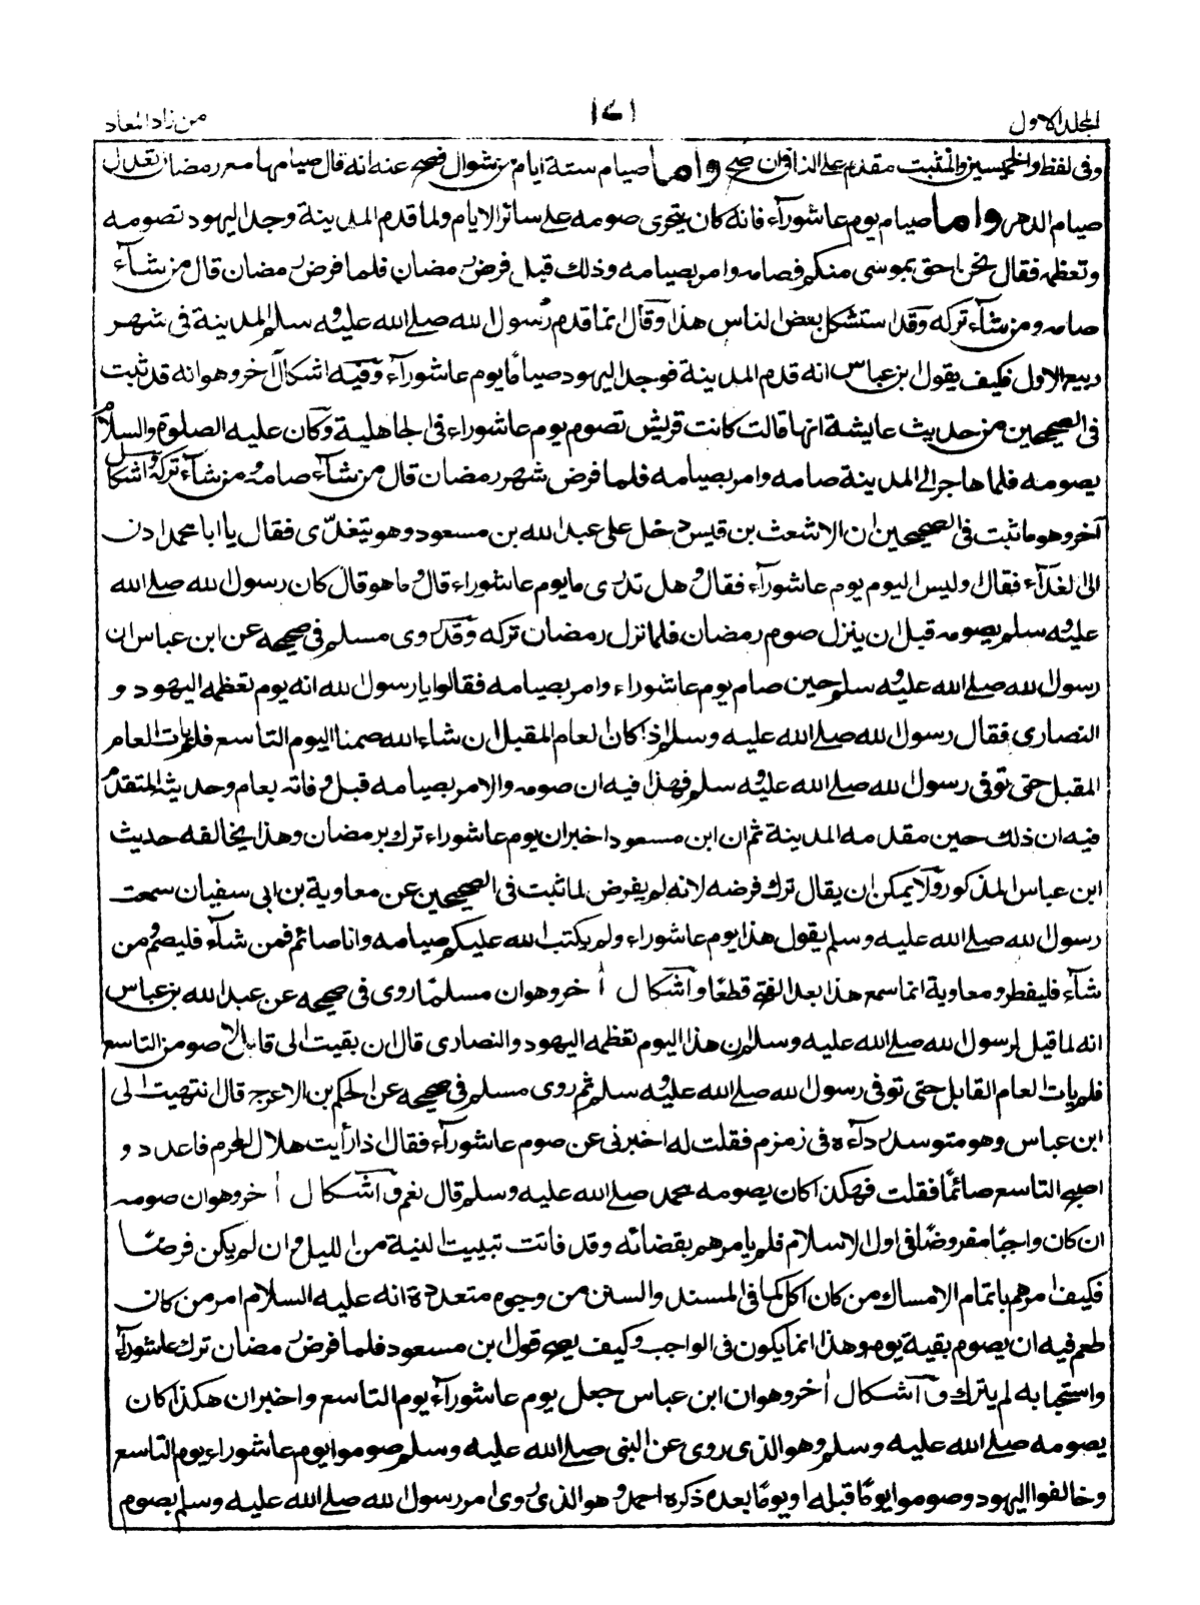 المجلد الاول
١٧١
من زاد المعاد
وفى لفظ والخميسين والمثبت مقدم على النافى ان صح واما صيام ستة ايام من شوال فصح عنه انه قال صيامها مع رمضان تعدل
صيام الدهر واما صيام يوم عاشوراء فانه كان يتحرى صومه على سائر الايام ولما قدم المدينة وجد اليهود تصومه
وتعظمه فقال نحن احق بموسى منكم فصامه وامر بصيامه وذلك قبل فرض رمضان فلما فرض رمضان قال من شاء
صامه ومن شاء تركه وقد استشكل بعض الناس هذا وقال انما قدم رسول الله صلى الله عليه وسلم المدينة فى شهر
ربيع الاول فكيف يقول ابن عباس انه قدم المدينة فوجد اليهود صياما يوم عاشوراء وفيه اشكال آخر وهو انه قد ثبت
فى الصحيحين من حديث عايشة انها قالت كانت قريش تصوم يوم عاشوراء فى الجاهلية وكان عليه الصلوة والسلام
يصومه فلما هاجر الى المدينة صامه وامر بصيامه فلما فرض شهر رمضان قال من شاء صامه ومن شاء تركه واشكال
آخر وهو ما ثبت فى الصحيحين ان الاشعث بن قيس دخل على عبد الله بن مسعود وهو يتغدى فقال يا ابا محمد ادن
الى الغداء فقال اوليس اليوم يوم عاشوراء فقال وهل تدرى ما يوم عاشوراء قال وما هو قال كان رسول الله صلى الله
عليه وسلم يصومه قبل ان ينزل صوم رمضان فلما نزل رمضان تركه وقد روى مسلم فى صحيحه عن ابن عباس ان
رسول الله صلى الله عليه وسلم حين صام يوم عاشوراء وامر بصيامه فقالوا يا رسول الله انه يوم تعظمه اليهود و
النصارى فقال رسول الله صلى الله عليه وسلم اذا كان العام المقبل ان شاء الله صمنا اليوم التاسع فلم يات العام
المقبل حتى توفى رسول الله صلى الله عليه وسلم فهذا فيه ان صومه والامر بصيامه قبل وفاته بعام وحديثه المتقدم
فيه ان ذلك حين مقدمه المدينة ثم ان ابن مسعود اخبر ان يوم عاشوراء ترك برمضان وهذا يخالفه حديث
ابن عباس المذكور ولا يمكن ان يقال ترك فرضه لانه لم يفرض لما ثبت فى الصحيحين عن معاوية بن ابى سفيان سمعت
رسول الله صلى الله عليه وسلم يقول هذا يوم عاشوراء ولم يكتب الله عليكم صيامه وانا صائم فمن شاء فليصم ومن
شاء فليفطر ومعاوية انما سمع هذا بعد الفتح قطعا واشكال آخر وهو ان مسلما روى فى صحيحه عن عبد الله بن عباس
انه لما قيل لرسول الله صلى الله عليه وسلم ان هذا اليوم تعظمه اليهود والنصارى قال ان بقيت الى قابل لاصومن التاسع
فلم يات العام القابل حتى توفى رسول الله صلى الله عليه وسلم ثم روى مسلم فى صحيحه عن الحكم بن الاعرج قال انتهيت الى
ابن عباس وهو متوسد رداءه فى زمزم فقلت له اخبرنى عن صوم عاشوراء فقال اذا رأيت هلال المحرم فاعدد و
اصبح التاسع صائما فقلت فهكذا كان يصومه محمد صلى الله عليه وسلم قال نعم واشكال آخر وهو ان صومه
ان كان واجبا مفروضا فى اول الاسلام فلم يامرهم بقضائه وقد فاتت تبييت النية من الليل وان لم يكن فرضا
فكيف امرهم باتمام الامساك من كان اكل كما فى المسند والسنن من وجوه متعددة انه عليه السلام امر من كان
طعم فيه ان يصوم بقية يومه وهذا انما يكون فى الواجب وكيف يصح قول ابن مسعود فلما فرض رمضان ترك عاشوراء
واستحبابه لم يترك واشكال آخر وهو ان ابن عباس جعل يوم عاشوراء يوم التاسع واخبر ان هكذا كان
يصومه صلى الله عليه وسلم وهو الذى روى عن النبى صلى الله عليه وسلم صوموا يوم عاشوراء يوم التاسع
وخالفوا اليهود وصوموا يوما قبله او يوما بعده ذكره احمد وهو الذى روى امر رسول الله صلى الله عليه وسلم بصوم